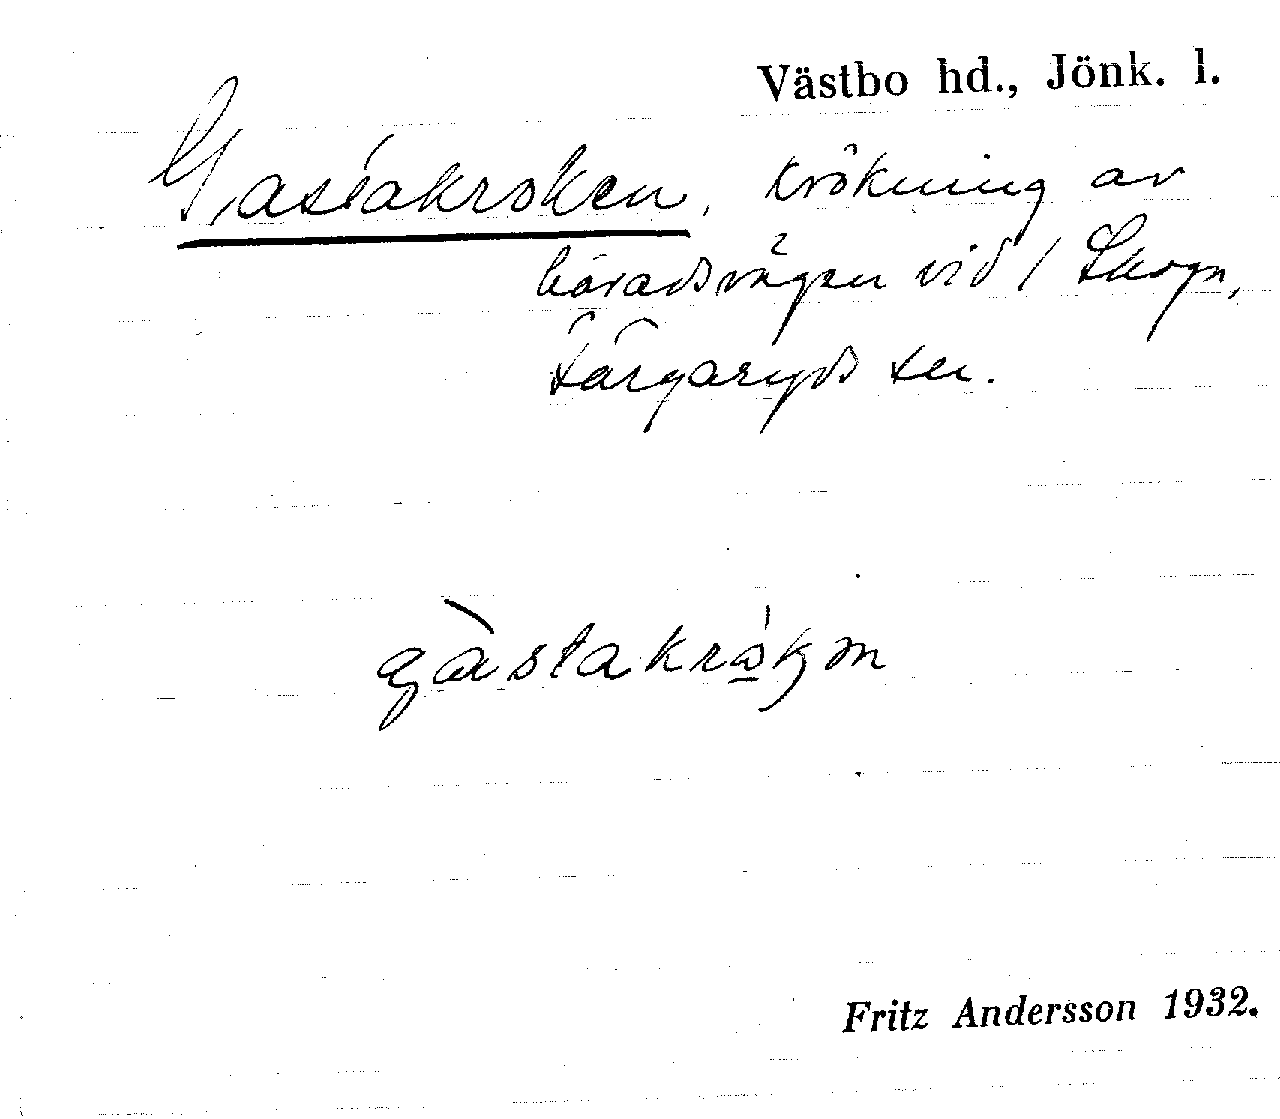 Västbo hd., Jönk. l.
Gastakroken, krökning av
häradsvägen vid / Skogn,
Färgaryds sn.
gàstakrǻkən
Fritz Andersson 1932.